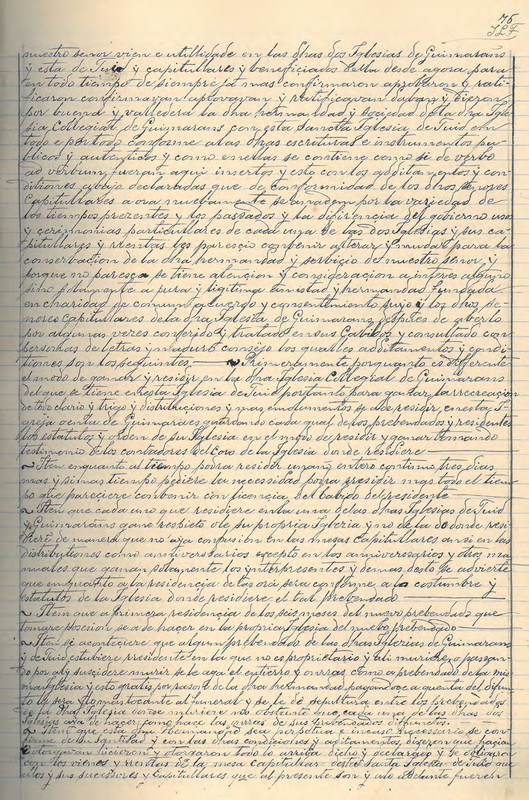 76
nuestro señor vien e utilidade en las dhas dos Iglesias de Guimarans
y esta de Tuid y capitullares y beneficiados della desde agora para
en todo tiempo de siempre jamas confirmaron aprobaron y rati-
ficaron confirmavan aprovavan y ratificavan davan y dieron
por buena y valledera la dha hermandad y sociedad de la dha Igle-
sia Collegial de Guimarans con esta Sancta Iglesia de Tuid en
todo e por todo conforme a las dhas escrituras e instrumentos pu-
blicos y autenticos y como en ellas se contiene como si de verbo
ad verbum fueran aqui insertos y esto con los additamentos y con-
ditiones abajo declaradas que de conformidad de los dhos señores
Capitullares aora nuebamente se añaden por la variedad de
los tiempos prezentes y los passados y la diferencia del gobierno usos
y cerimonias particulares de cada una de las dos Iglesias y sus ca-
pitullares y rentas les paresçio convenir alterar y mudar para la
conserbacion de la dha hermandad y serbiçio de nuestro señor y
porque no paresca se tiene atencion y consideracion a interes alguno
sino solamente a pura y ligitima amistad y hermandad fundada
en charidad de comun acuerdo y consentimiento suyo y los dhos se-
nores capitullares de la dha Iglesia de Guimarans despues de aberlo
por algunas veces conferido y tratado en sus Cabidos y consultado con
personas de letras y maduro consejo los quales additamentos y condi-
tiones son los seguintes — Primeramente porquanto es diferente
el modo de ganar y residir en la dha Iglesia Collegial de Guimarans
del que se tiene en esta Iglesia de Tuid portanto para ganar la recreacion
de trecelario y trigo y distribuciones y mas emolumentos se a de residir en esta I-
glesia e en la de Guimaraes guardando cada qual de los prebendados y residentes
los estatutos y orden de su Iglesia en el modo de residir y ganar tomando
testimonio de los contadores del Coro de la Iglesia donde residiere
~ Iten en quanto al tiempo podra residir un año entero continuo tres dias
mas y si mas tiempo pediere la necessidad podra residir mas todo el tiem-
po que pareciere convenir con licencia del cabido del residente
~ Iten que cada uno que residiere en la una de las dhas Iglesias de Tuid
y Guimarans gane respeto de su propria Iglezia y no de la de donde resi-
diere de manera que no aja confusion en las mezas capitullares ansi en las
distributiones como anniversarios excepto en los anniversarios y otros ma-
nuales que ganan solamente los interpresentes y demas desto se advierte
que en quanto a la residencia de las oras sera conforme a la costumbre y
estatutos de la Iglesia donde residiere el tal prebendado
~ Iten que a primera residencia de los seis meses del nuevo prebendado que
tomare posesion se a de haçer en la propria Iglesia del nuebo prebendado
~ Iten se aconteciere que algun prebendado de las dhas Iglezias de Guimarans
y de Tuid estubiere presidente en la que no es proprietario y alli muriere o passan-
do por ali y suscidere murir se le aga el entierro y misas como a prebendado de la mis-
ma Iglesia y esto gratis por rason de la dha hermandad pagandose a quenta del difun-
to la sera y lo mas tocante a funeral y se le de sepultura entre los prebendados
de la tal Iglesia donde muriere no obstante que cada una de las dhas dos
Iglesias aya de haçer como hace las misas de sus prebendados difunctos
~ Iten que esta dha hermandad sea perpetua e in caso necessario se con-
firme de su Santidad y con estas dhas condiciones y additamentos, diserom que haçian
e otorgavan hicieron y otorgaron todo lo arriba dicho y declarado y se obligaron
con los vienes y rentas de la mesa capitullar desta Santa Iglesia de Tuid que
ellos y sus sucesores y capitullares que al presente son y ao adelante fueren